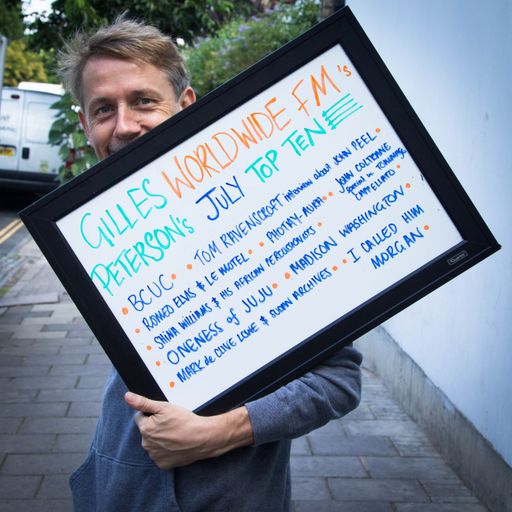 GILLES WORLDWIDE FM's
PETERSON's JULY TOP TEN
• BCUC • TOM RAVENSCROFT interview about JOHN PEEL •
• ROMEO ELVIS & LE MOTEL • PHOTAY-AURA • JOHN COLTRANE
special w. TOMMASO
CAPPELLATO •
• SHINA WILLIAMS & HIS AFRICAN PERCUSSIONISTS •
• ONENESS of JUJU • MADISON WASHINGTON •
• MARK de CLIVE LOWE & SUDAN ARCHIVES • I CALLED HIM
MORGAN •